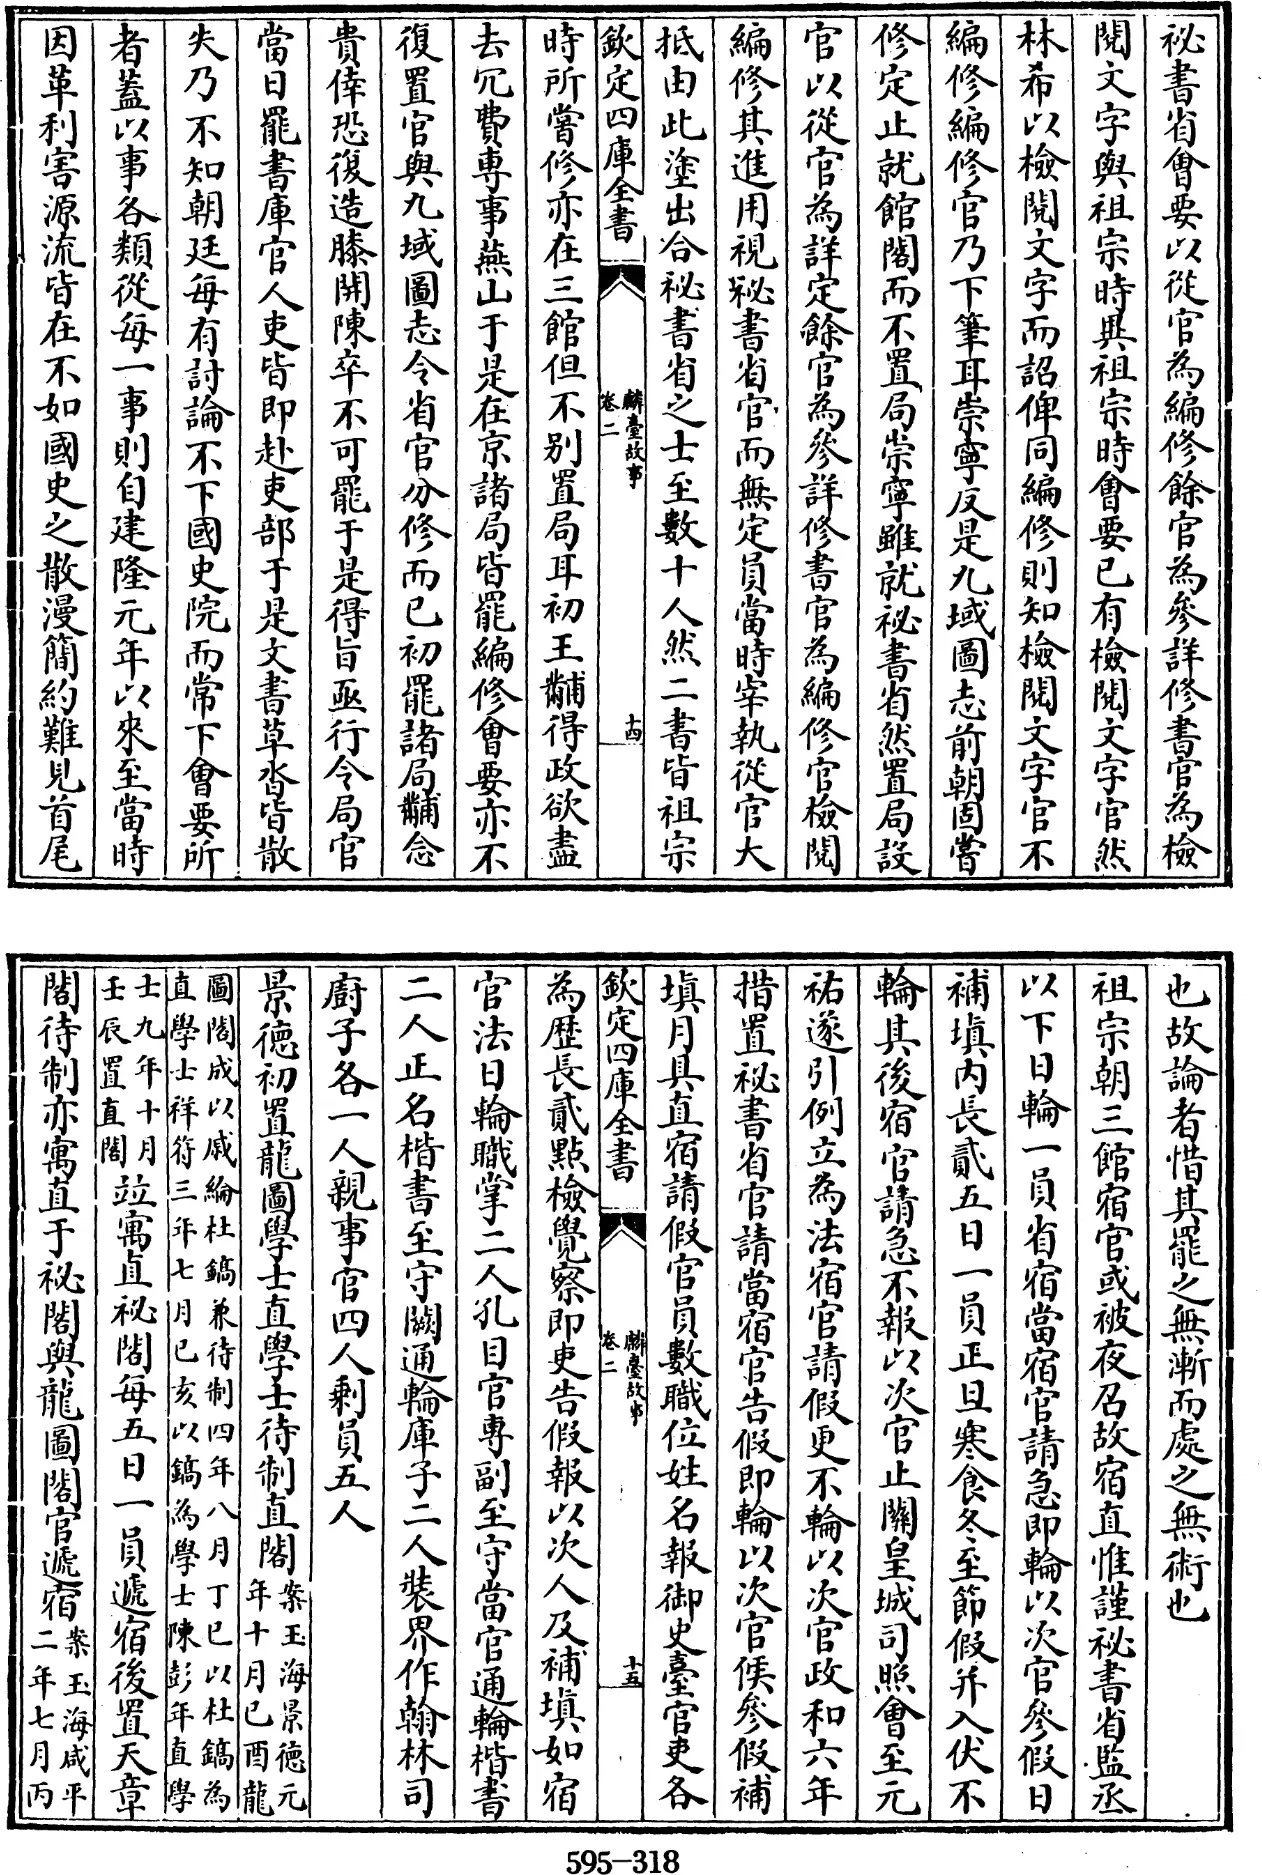 祕書省會要以從官為編修餘官為參詳修書官為檢
閱文字與祖宗時異祖宗時會要已有檢閱文字官然
林希以檢閱文字而詔俾同編修則知檢閱文字官不
編修編修官乃下筆耳崇寧反是九域圖志前朝固嘗
修定止就館閣而不置局崇寧雖就祕書省然置局設
官以從官為詳定餘官為參詳修書官為編修官檢閱
編修其進用視祕書省官而無定員當時宰執從官大
抵由此塗出合祕書省之士至數十人然二書皆祖宗
欽定四庫全書
麟臺故事
卷二
十四
時所嘗修亦在三館但不別置局耳初王黼得政欲盡
去冗費専事燕山于是在京諸局皆罷編修會要亦不
復置官與九域圖志令省官分修而已初罷諸局黼念
貴倖恐復造膝開陳卒不可罷于是得旨亟行令局官
當日罷書庫官人吏皆即赴吏部于是文書草沓皆散
失乃不知朝廷每有討論不下國史院而常下會要所
者蓋以事各類從每一事則自建隆元年以來至當時
因革利害源流皆在不如國史之散漫簡約難見首尾
也故論者惜其罷之無漸而處之無術也
祖宗朝三館宿官或被夜召故宿直惟謹祕書省監丞
以下日輪一員省宿當宿官請急即輪以次官參假日
補填內長貳五日一員正旦寒食冬至節假并入伏不
輪其後宿官請急不報以次官止關皇城司照會至元
祐遂引例立為法宿官請假更不輪以次官政和六年
措置祕書省官請當宿官告假即輪以次官俟參假補
填月具直宿請假官員數職位姓名報御史臺官吏各
欽定四庫全書
麟臺故事
卷二
十五
為歷長貳點檢覺察即吏告假報以次人及補填如宿
官法日輪職掌二人孔目官専副至守當官通輪楷書
二人正名楷書至守闕通輪庫子二人裝界作翰林司
廚子各一人親事官四人剩員五人
景德初置龍圖學士直學士待制直閣案玉海景德元年十月已酉龍
圖閣成以戚綸杜鎬兼待制四年八月丁已以杜鎬為直學士祥符三年七月已亥以鎬為學士陳彭年直學
士九年十月壬辰置直閣竝寓直祕閣每五日一員遞宿後置天章
閣待制亦寓直于祕閣與龍圖閣官遞宿案玉海咸平二年七月丙
595-318